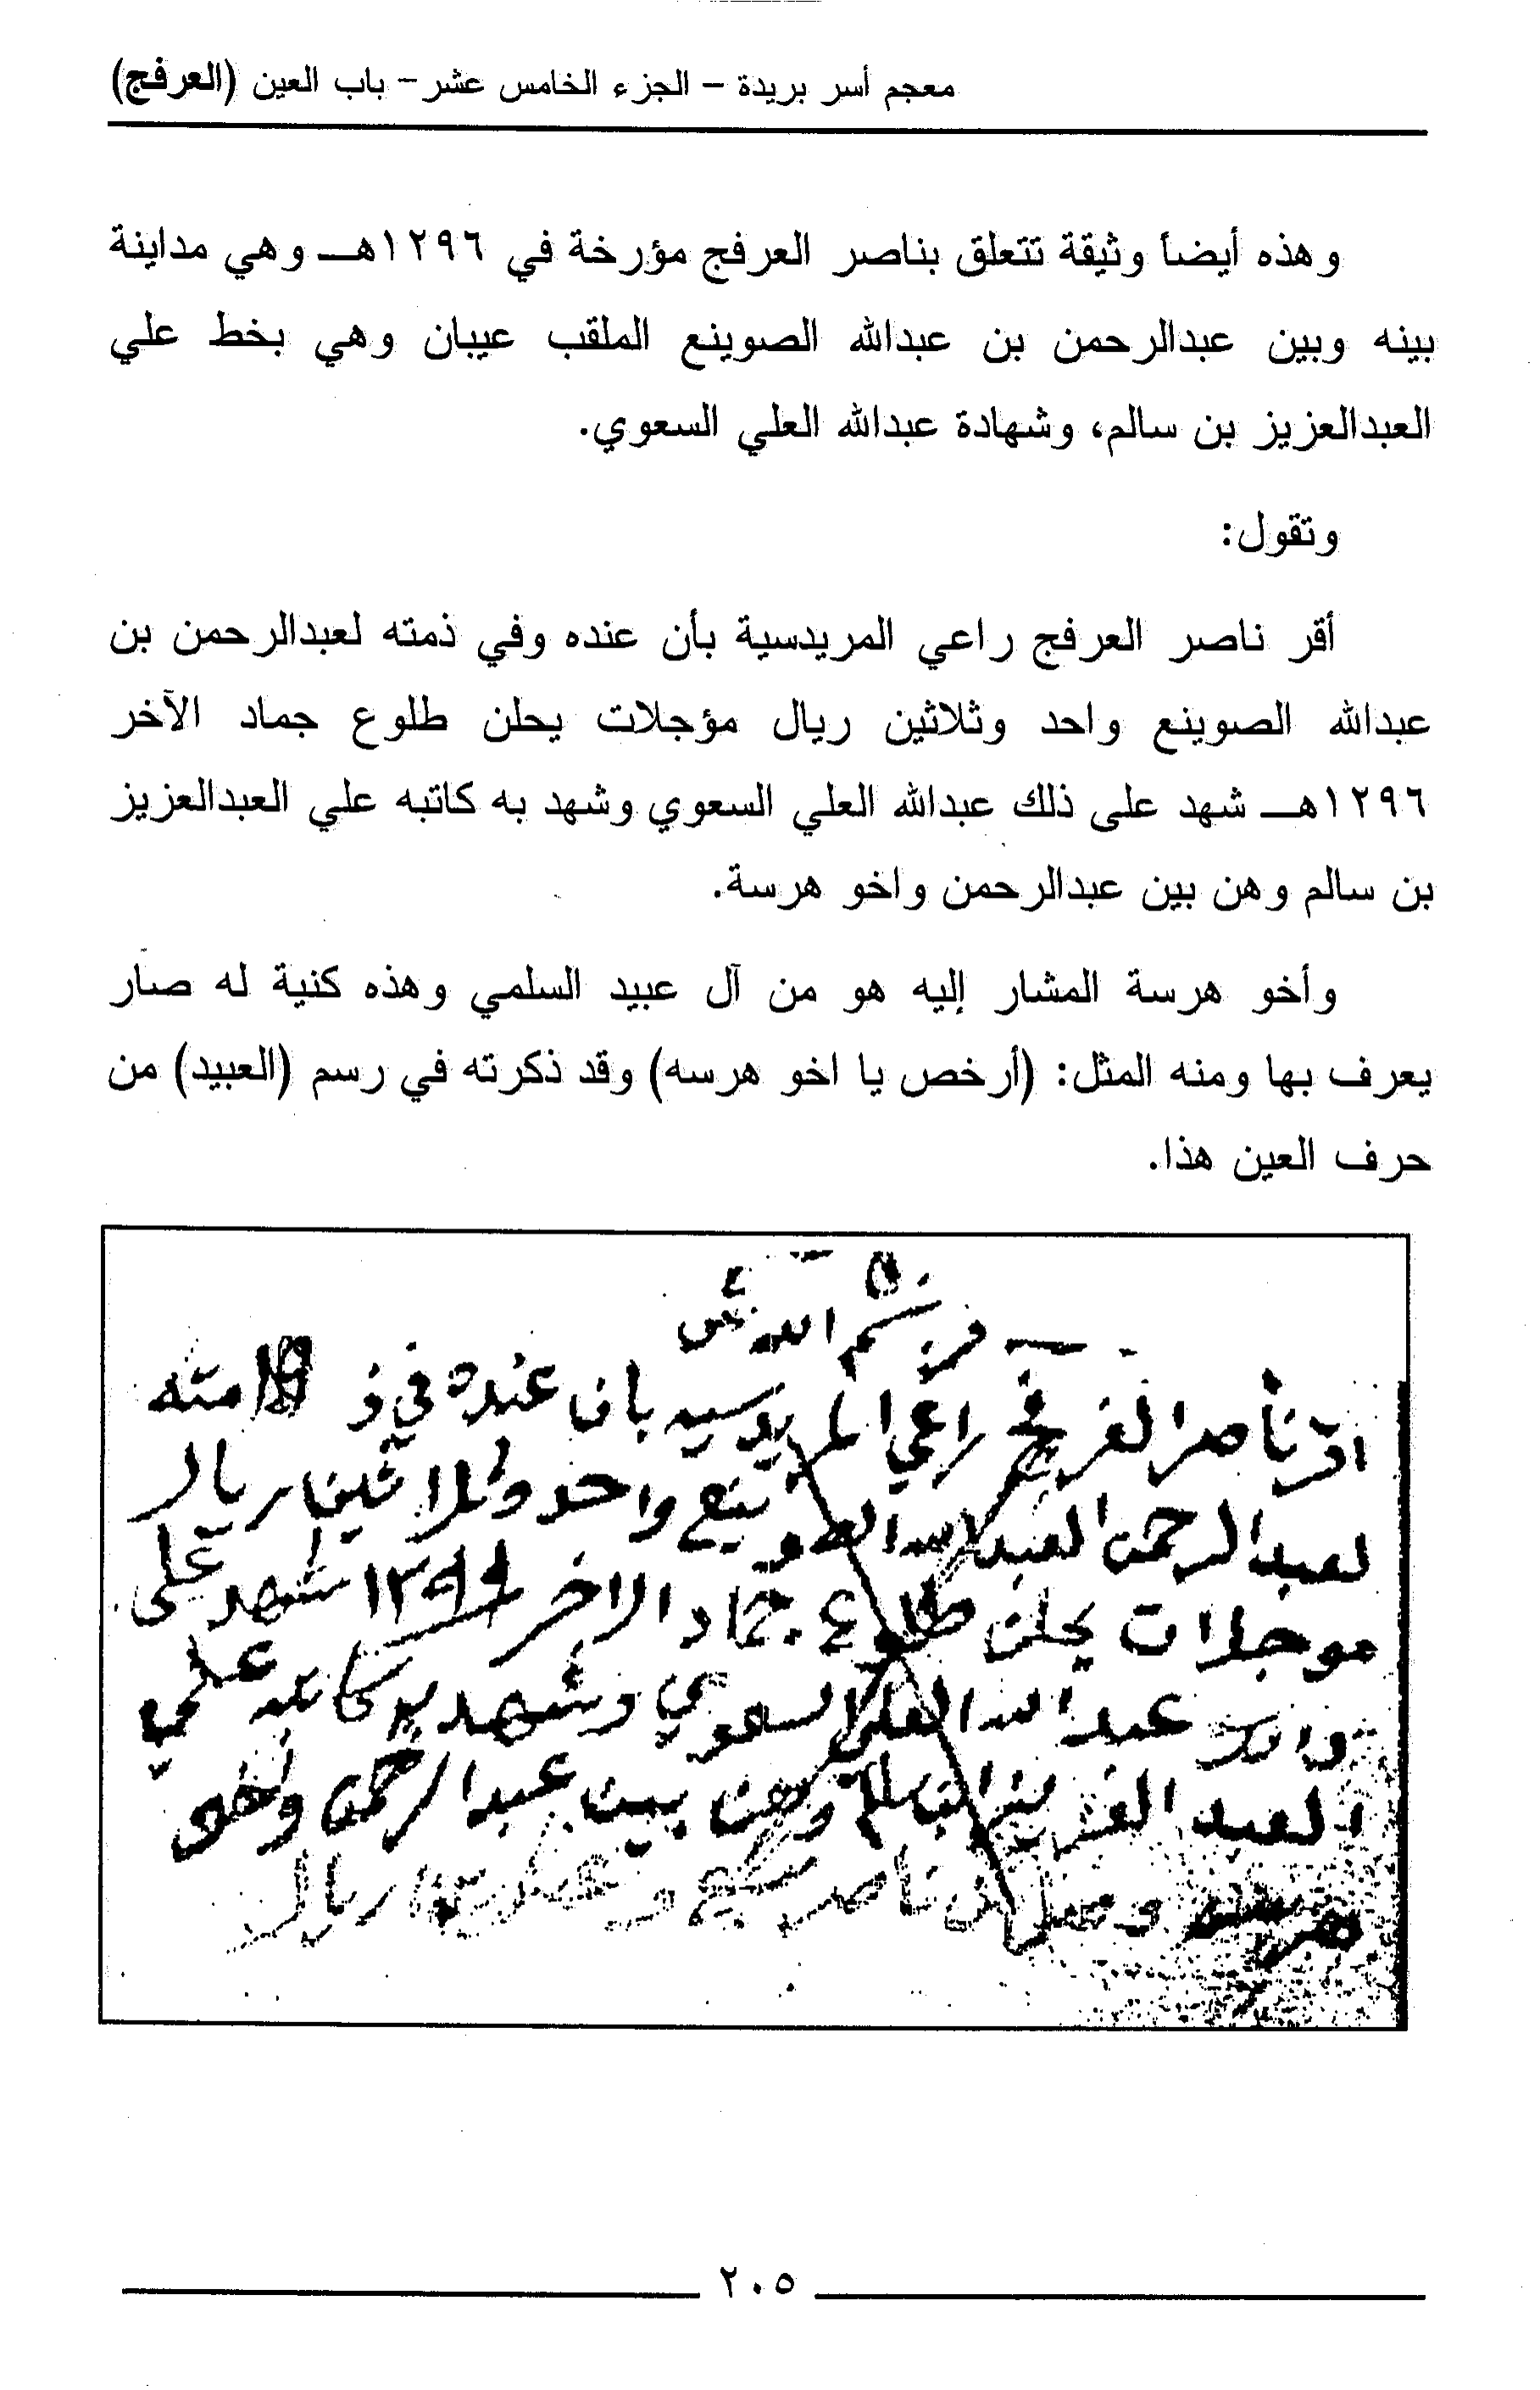 معجم أسر بريدة – الجزء الخامس عشر – باب العين (العرفج)
وهذه أيضاً وثيقة تتعلق بناصر العرفج مؤرخة في ١٢٩٦هـ وهي مداينة
بينه وبين عبدالرحمن بن عبدالله الصوينع الملقب عيبان وهي بخط علي
العبدالعزيز بن سالم، وشهادة عبدالله العلي السعوي.
وتقول:
أقر ناصر العرفج راعي المريدسية بأن عنده وفي ذمته لعبدالرحمن بن
عبدالله الصوينع واحد وثلاثين ريال مؤجلات يحلن طلوع جماد الآخر
١٢٩٦هـ شهد على ذلك عبدالله العلي السعوي وشهد به كاتبه علي العبدالعزيز
بن سالم وهن بين عبدالرحمن واخو هرسة.
وأخو هرسة المشار إليه هو من آل عبيد السلمي وهذه كنية له صار
يعرف بها ومنه المثل: (أرخص يا اخو هرسه) وقد ذكرته في رسم (العبيد) من
حرف العين هذا.
اقر ناصر العرفج راعي المريدسيه بان عنده في ذ مته
لعبدالرحمن العبدالله الصوينع واحد وثلاثين ريال
موجلات يحلن طلوع جماد الاخر ١٢٩٦ شهد على
ذالك عبدالله العلي السعوي وشهد به كاتبه علي
العبد العزيز ابن سالم وهن بين عبدالرحمن واخو
هرسه ناصر ريال
٢٠٥